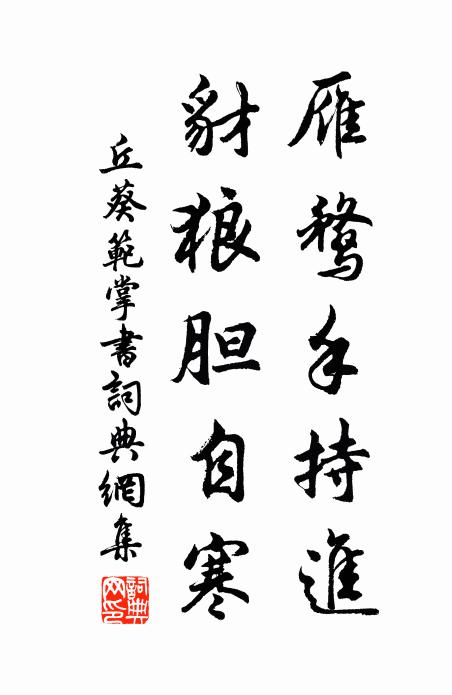 雁鶩手持進
豺狼胆自寒
丘葵範掌書詞典網集
詞典网印